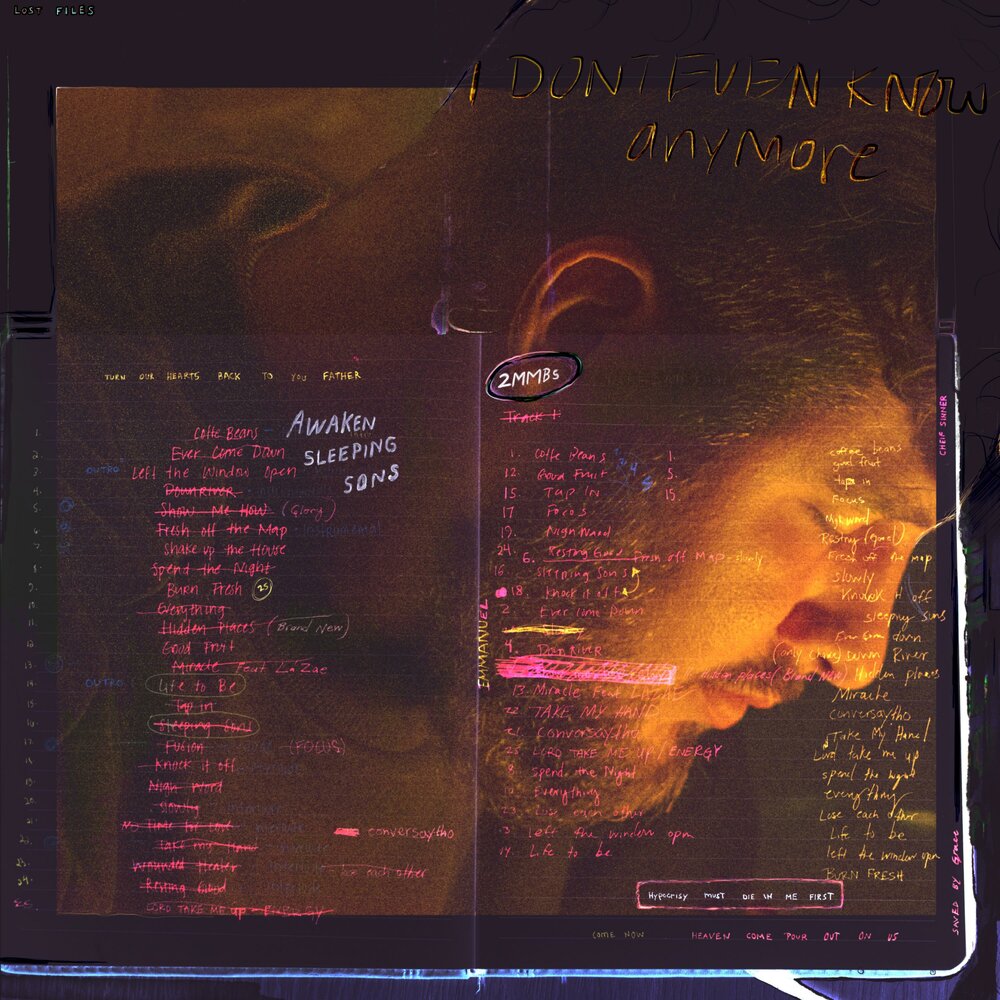 LOST FILES
I DONT EVEN KNOW
anymore
TURN OUR HEARTS BACK TO YOU FATHER
AWAKEN
SLEEPING
SONS
1.
Coffe Beans
2.
Ever Come Down
3.
OUTRO
Left the Window Open
4.
Downriver
5.
Show Me How (Glory)
6.
Fresh off the Map
instrumental
7.
Shake up the House
8.
Spend the Night
9.
Burn Fresh 25
10.
Everything
11.
Hidden Places (Brand New)
12.
Good Fruit
13.
Miracle Feat LaZae
14.
OUTRO
Life to Be
15.
Tap in
16.
Sleeping Sons
17.
Fusion (FOCUS)
18.
Knock it off
19.
20.
21.
No time for
conversaytho
22.
Take my
23.
Wounded Healer
Lose each other
24.
Resting Good
25.
LORD TAKE ME up - ENERGY
2MMBs
Track #
1. Coffe Beans 1
12. Good Fruit 5.
15. TAP IN 15.
17 Focos
19. Nigh Ward
24. 6. Resting Good Fresh off Map - slowly
16 Sleeping Sons
18. Knock it off
2. Ever Come Down
4. Down River
Hidden places (Brand New)
13. Miracle Feat
22 TAKE MY HAND
21. Conversaytho
25 LORD TAKE ME UP / ENERGY
8. Spend the Night
10 Everything
23. Lose each other
3. Left the window opn
14. Life to be
coffee beans
good fruit
tap in
Focus
Resting (good)
Fresh off the map
slowly
Knock it off
sleeping sons
Ever Come down
(only come) Down River
Hidden places
Miracle
conversaytho
Take My Hand
Lord take me up
spend the night
everything
Lose each other
Life to be
left the window opn
BURN FRESH
EMMANUEL
CHEIF SINNER
SAVED BY Grace
Hypocrisy MUST DIE IN ME FIRST
COME NOW
HEAVEN COME POUR OUT ON US